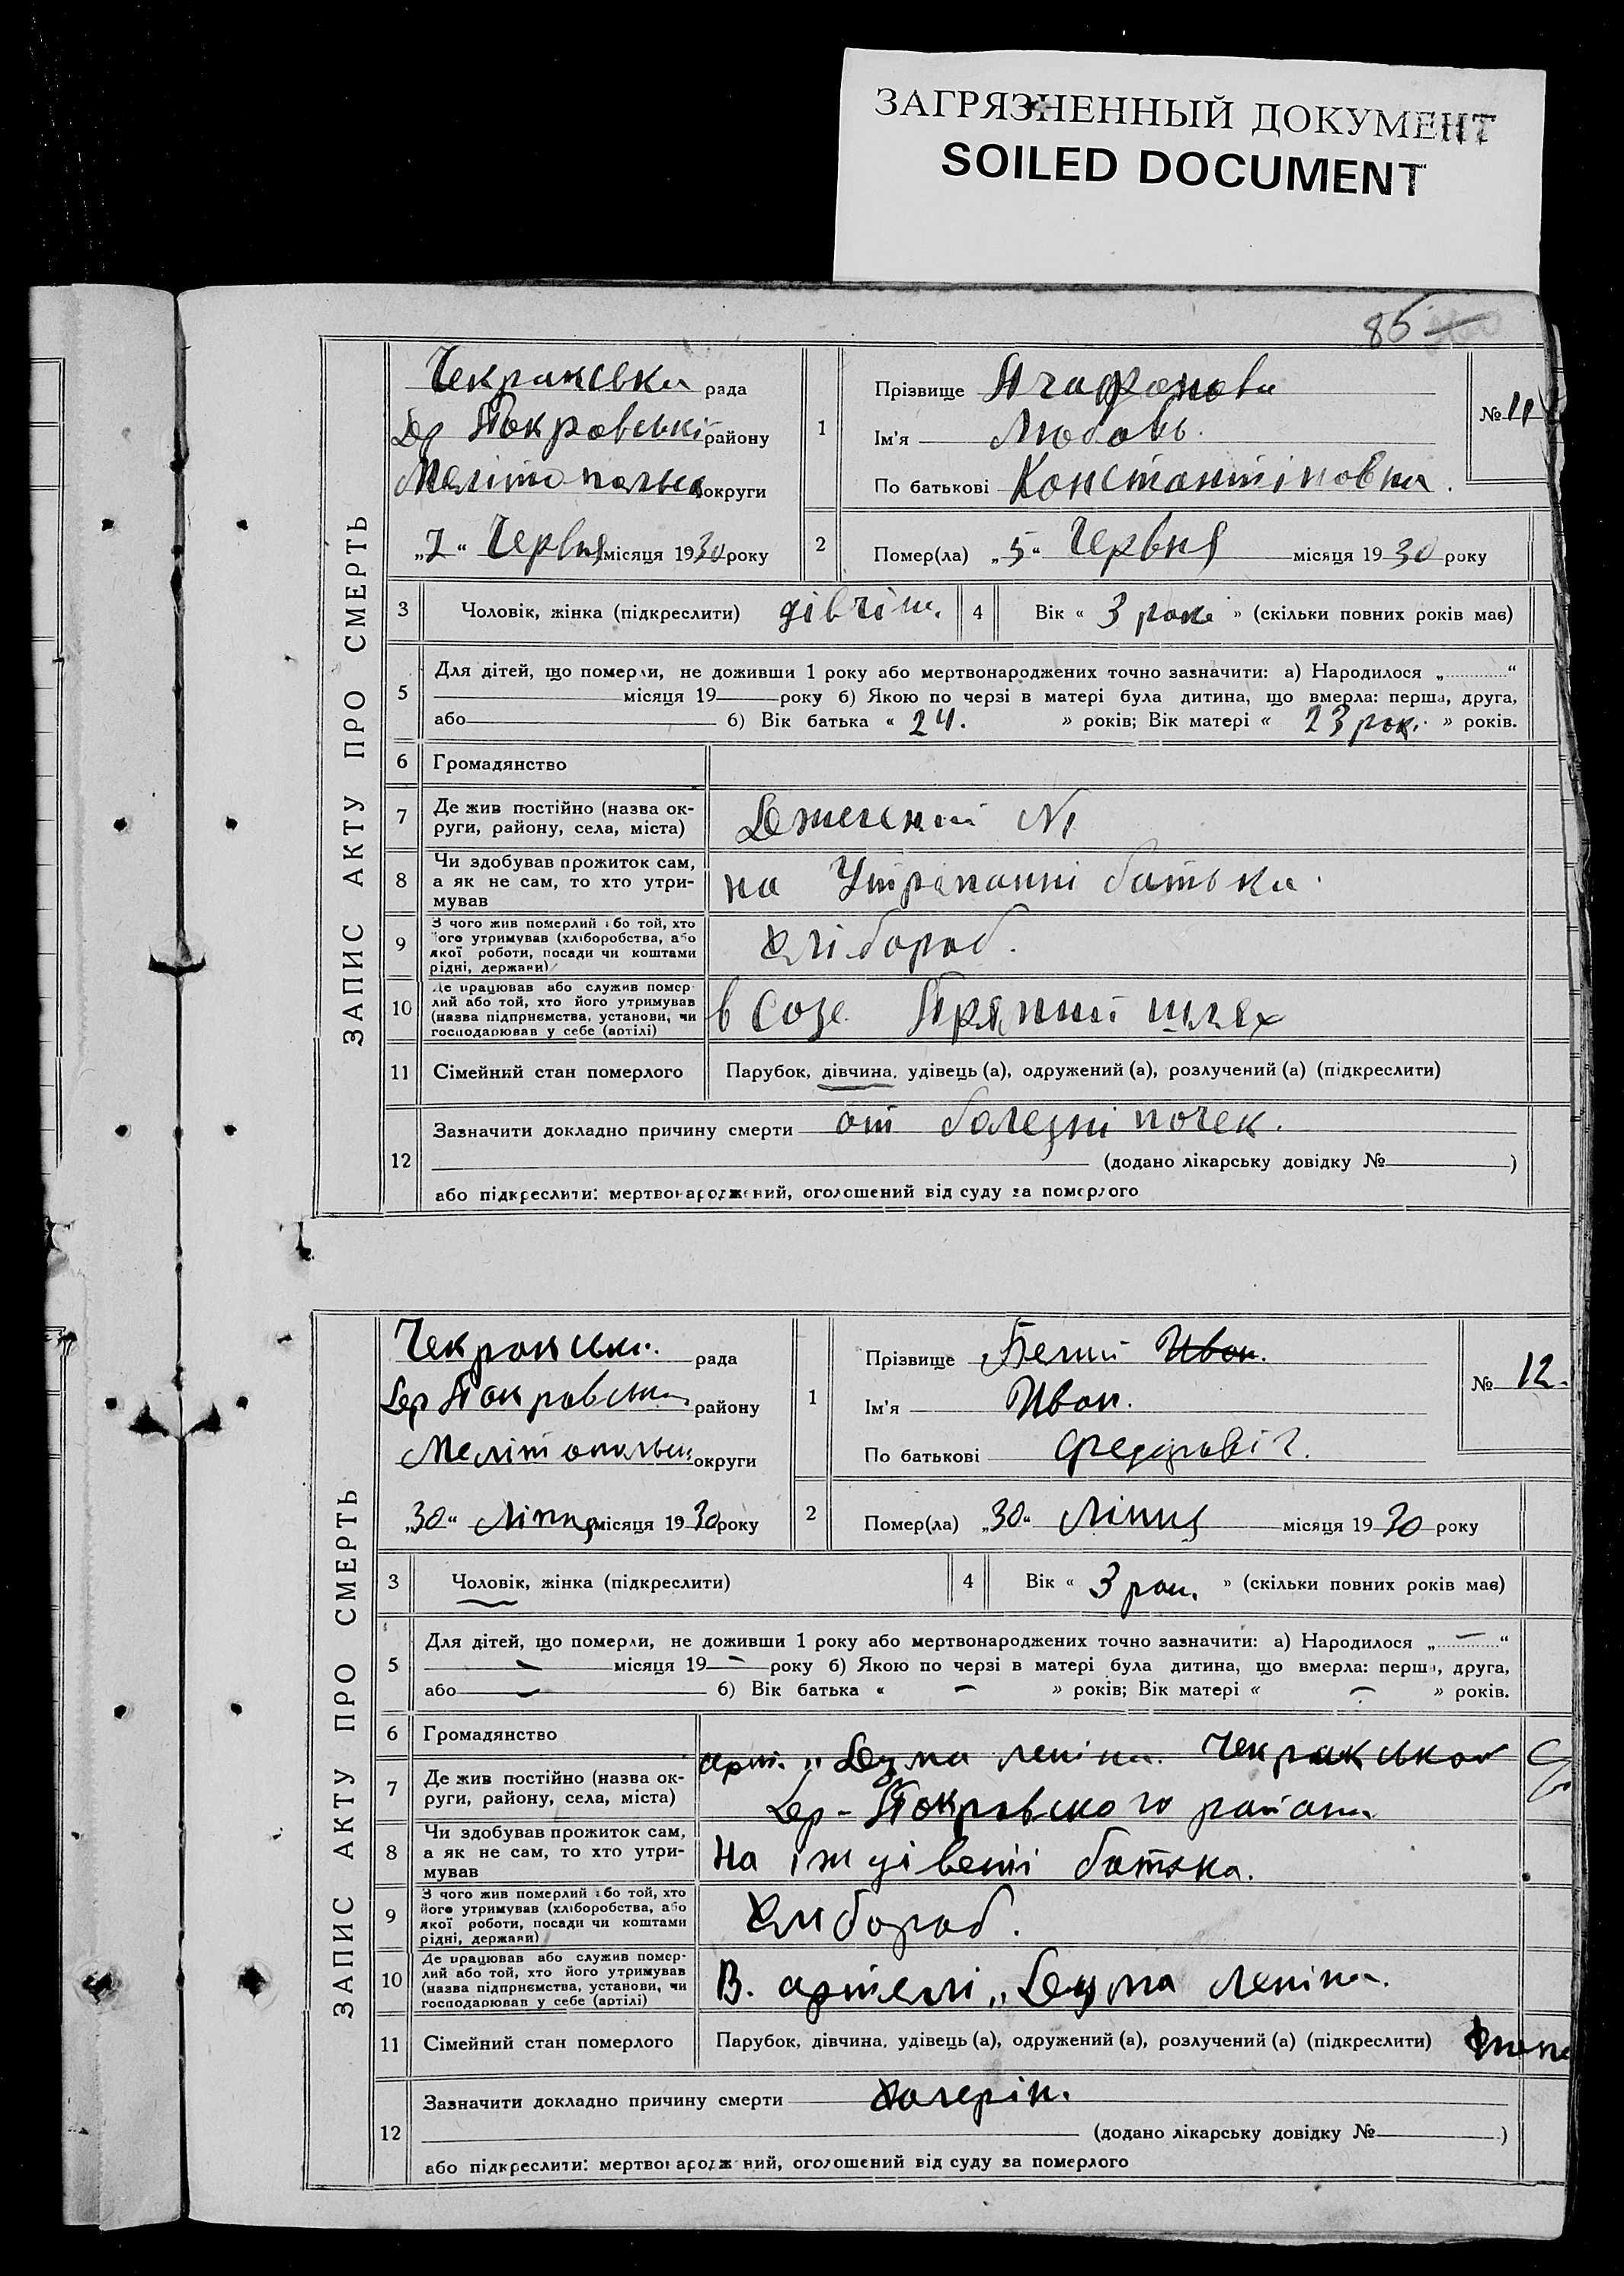 ЗАГРЯЗНЕННЫЙ ДОКУМЕНТ
SOILED DOCUMENT
85
ЗАПИС АКТУ ПРО СМЕРТЬ
Чекракська рада
Покровські району
Мелітопольск округи
„7“ Червня місяця 1930 року
1
Прізвище Агафонова
Ім'я Любовь.
По батькові Константіновна.
№ 11
2
Помер(ла) „5“ Червня місяця 1930 року
3 Чоловік, жінка (підкреслити) дівчін. 4 Вік « 3 роки » (скільки повних років мав)
5
Для дітей, що померли, не доживши 1 року або мертвонароджених точно зазначити: а) Народилося „ “
місяця 19 року б) Якою по черзі в матері була дитина, що вмерла: перша, друга,
або б) Вік батька « 24. » років; Вік матері « 23 рок. » років.
6 Громадянство
7 Де жив постійно (назва ок-
руги, району, села, міста)
№1
8 Чи здобував прожиток сам,
а як не сам, то хто утри-
мував
на Утріманні батька.
9 З чого жив померлий або той, хто
його утримував (хліборобства, або
якої роботи, посади чи коштами
рідні, держави)
Хлібороб.
10 Де працював або служив помер-
лий або той, хто його утримував
(назва підприємства, установи, чи
господарював у себе (артілі)
в Созе Прямий шлях
11 Сімейний стан померлого Парубок, дівчина, удівець (а), одружений (а), розлучений (а) (підкреслити)
12
Зазначити докладно причину смерти от болезні почек.
(додано лікарську довідку № )
або підкреслити: мертвонароджений, оголошений від суду за померлого
ЗАПИС АКТУ ПРО СМЕРТЬ
Чекракськ. рада
Покровськ району
Мелітопольськ округи
„30“ Ліпня місяця 1930 року
1
Прізвище Белий Иван.
Ім'я Иван.
По батькові Федоровіч.
№ 12.
2
Помер(ла) „30“ Ліпня місяця 1930 року
3 Чоловік, жінка (підкреслити) 4 Вік « 3 рок. » (скільки повних років мав)
5
Для дітей, що померли, не доживши 1 року або мертвонароджених точно зазначити: а) Народилося „ — “
— місяця 19 — року б) Якою по черзі в матері була дитина, що вмерла: перша, друга,
або — б) Вік батька « — » років; Вік матері « — » років.
6 Громадянство
арт. „ Дума леніна. Чекракской
7 Де жив постійно (назва ок-
руги, району, села, міста)
Покровского района
8 Чи здобував прожиток сам,
а як не сам, то хто утри-
мував
На іждівенії батька.
9 З чого жив померлий або той, хто
його утримував (хліборобства, або
якої роботи, посади чи коштами
рідні, держави)
Хлібороб.
10 Де працював або служив помер-
лий або той, хто його утримував
(назва підприємства, установи, чи
господарював у себе (артілі)
В. артелі „ Дума Леніна.
11 Сімейний стан померлого Парубок, дівчина, удівець (а), одружений (а), розлучений (а) (підкреслити)
12
Зазначити докладно причину смерти холерін.
(додано лікарську довідку № )
або підкреслити: мертвонароджений, оголошений від суду за померлого